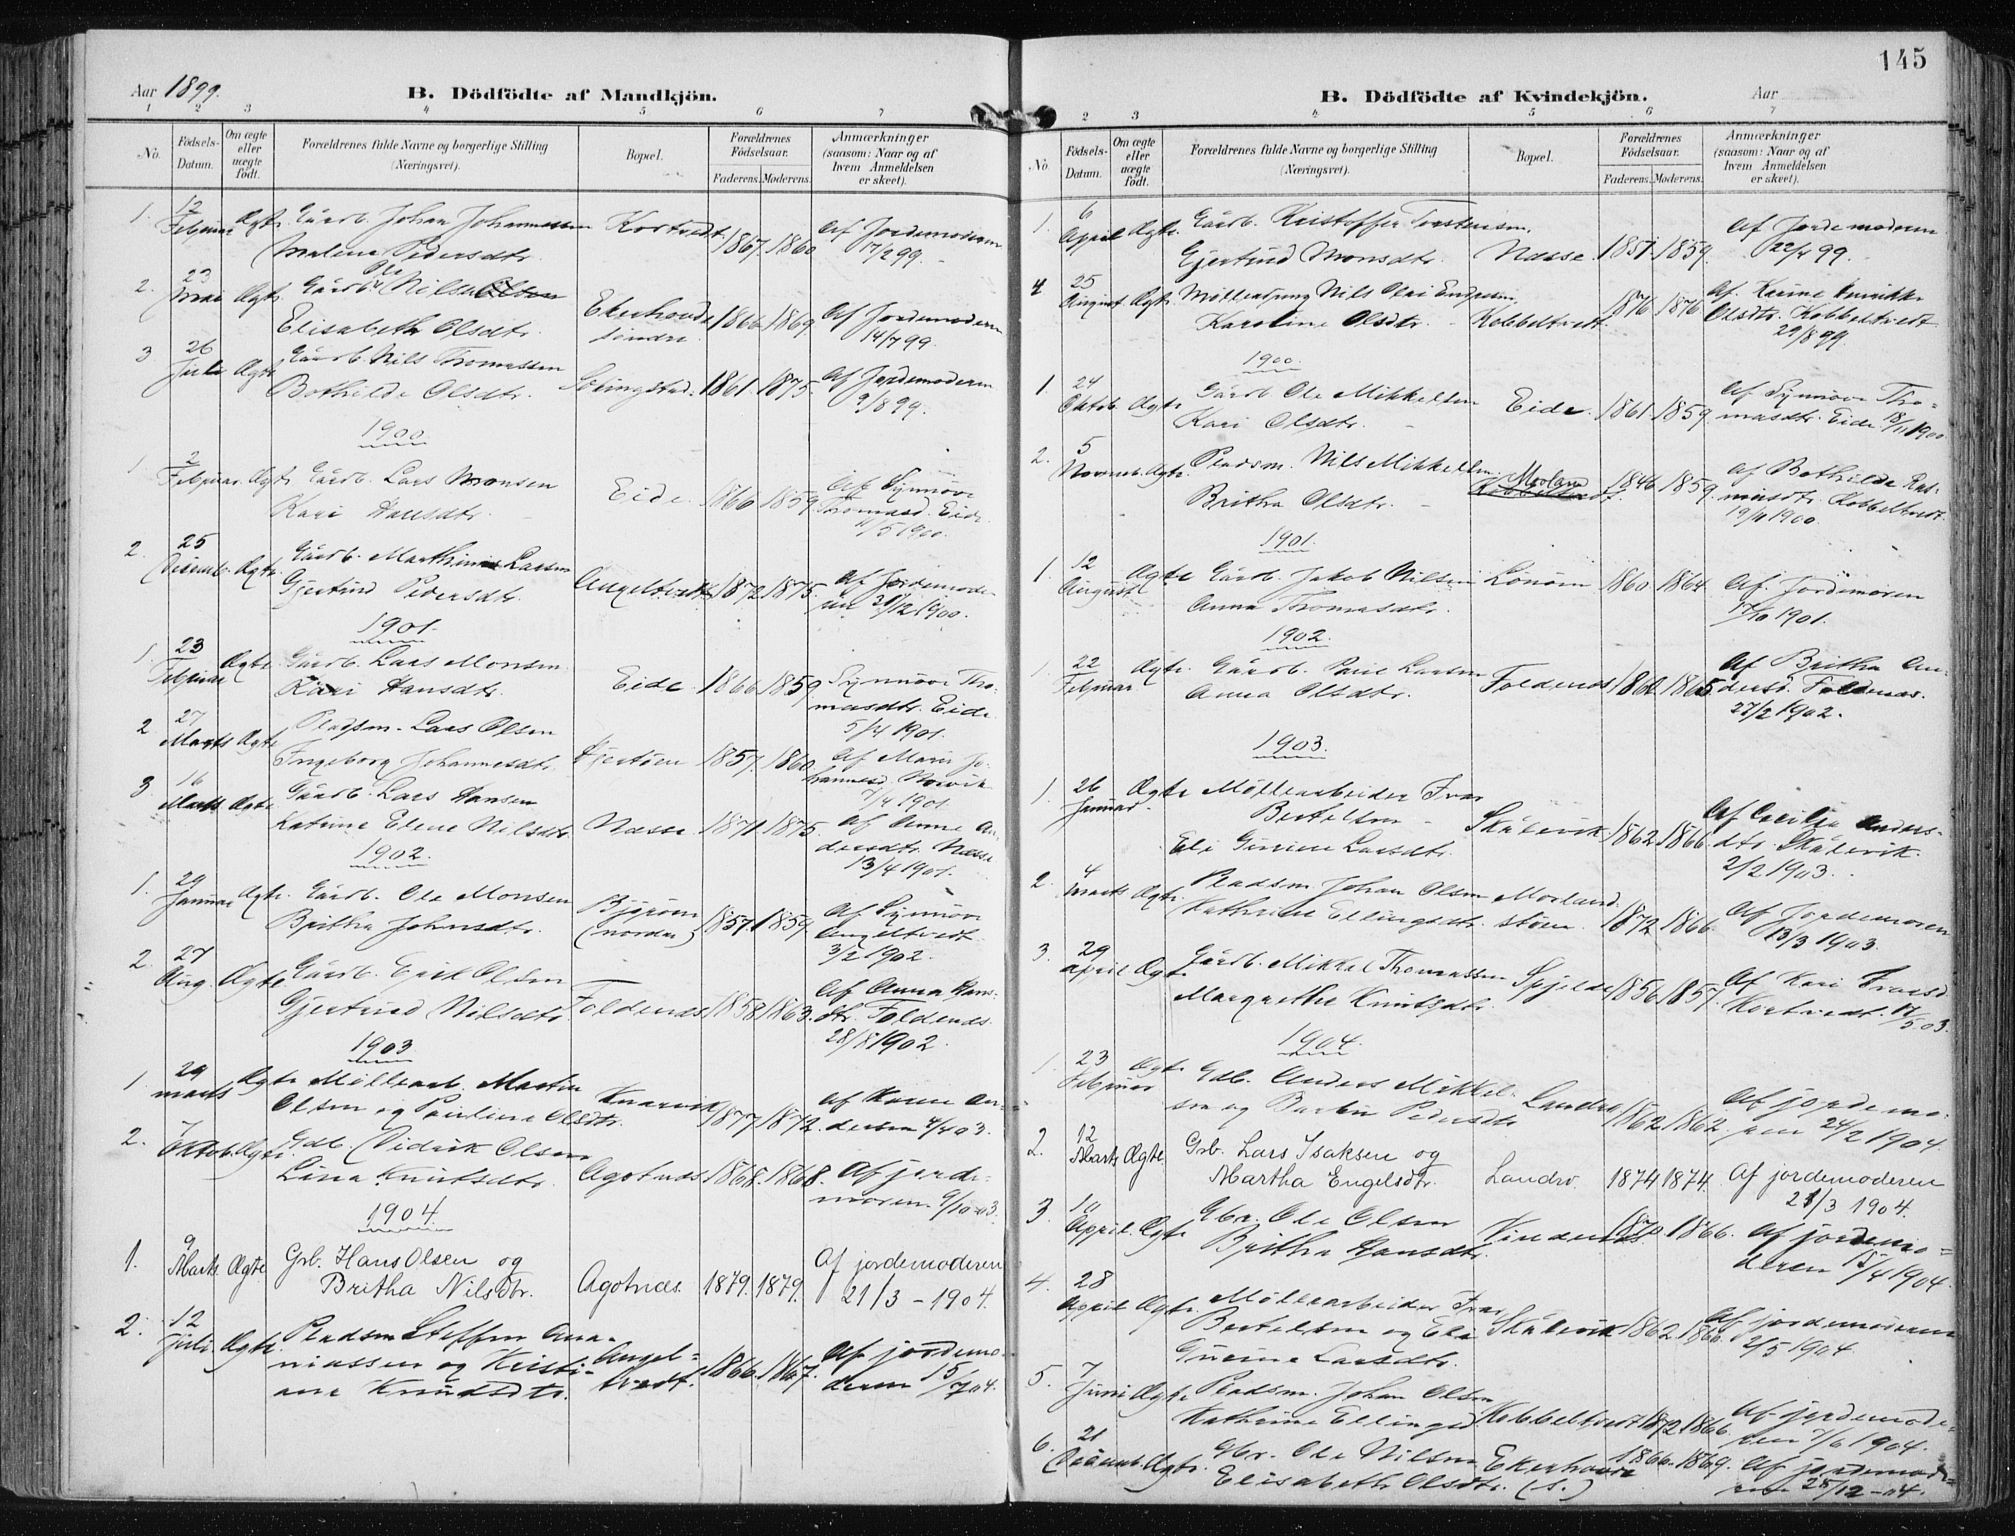 145
Aar 1899.
B. Dödfödte af Mandkjön.
1 2 3 4 5 6 7
No.
Födsels-Datum.
Om ægte eller uægte født.
Forældrenes fulde Navne og borgerlige Stilling (Næringsvei).
Bopæl.
Forældrenes Födselsaar.
Faderens. Moderens.
Anmærkninger (saasom: Naar og af hvem Anmeldelsen er skeet).
1. 12 Februar Ægte Gaardb. Johan Johannessen Kortvedt 1867. 1860 Af Jordemoderen
Malene Pedersdtr. 17/2 99.
2. 23 Mai Ægte Gaardb. Ole Nilsen Ekerhovde 1866 1869 Af Jordemoderen
Elisabeth Olsdtr. søndre 14/7 99.
3 26 Juli Ægte Gaardb. Nils Thomassen 1861. 1875. Af Jordemoderen
Bothilde Olsdtr. 9/8 99.
1900
1. 2 Februar. Ægte Gaardb. Lars Monsen Eide. 1866 1859 Af Synnøve
Kari Hansdtr. Thomasd. Eide
11/5 1900.
2. 25 Decemb. Ægte Gaardb. Marthinus Larsen Angeltvedt 1872 1875. Af Jordemode-
Gjertrud Pedersdtr. ren 31/12 1900.
1901.
1. 23 Februar Ægte Gaardb. Lars Monsen Eide 1866 1859 Synnøve Tho-
Kari Hansdtr. masdtr. Eide
5/4 1901.
2 27 Marts Ægte Pladsm. Lars Olsen 1857. 1860. Af Mari Jo-
Ingeborg Johannesdtr. hannesd.
7/4 1901.
3 16 Marts Ægte Gaardb. Lars Hansen Næsse 1871. 1875. Af Anne An-
Katrine Elene Nilsdtr. dersdtr. Næsse
13/4 1901.
1902.
1. 29 Januar Ægte Gaardb. Ole Monsen Bjørøen 1857. 1859. Af Synnøve
Britha Johnsdtr. (nordre) Angeltvedt
3/2 1902.
2. 27 Aug. Ægte Gaardb. Erik Olsen Foldenæs 1858 1863. Af Anna Hans-
Gjertrud Nilsdtr. dtr. Foldenæs.
28/8 1902.
1903
1. 29 marts Ægte Møllearb. Martin Knarvik 1877 1872. af Karen An-
Olsen og Pauline Olsdtr. dersen 4/4 03.
2. 7 Oktob. Ægte Gdb. Didrik Olsen Agotnæs 1868. 1868. Af jorde-
Lina Knutsdtr. moren 9/10-03.
1904.
1. 9 Marts Ægte Grb. Hans Olsen og Agotnæs. 1879. 1879. Af jordemoderen
Britha Nilsdtr. 21/3 - 1904.
2. 12 Juli Ægte Pladsm Steffen Ana- Angel- 1866. 1867. Af jordemo-
niassen og Kristi- tvedt. deren 15/7 04.
ane Knudsdtr.
B. Dödfödte af Kvindekjön.
Aar
2 3 4 5 6 7
No.
Födsels-Datum.
Om ægte eller uægte födt.
Forældrenes fulde Navne og borgerlige Stilling (Næringsvei).
Bopæl.
Forældrenes Födselsaar.
Faderens. Moderens.
Anmærkninger (saasom: Naar og af hvem Anmeldelsen er skeet).
1. 6 April Ægte. Gaardb. Kristoffer Torstensen. Næsse. 1851. 1859. Af Jordemoderen
Gjertrud Monsdtr. 22/4 99.
25 August Ægte Møllesvend Nils Olai Endresen, Kobbeltvedt. 1876 1876 Af. Karine
Karoline Olsdtr. Olsdtr. Kobbeltvedt
29/8 99.
1900.
1. 24 Oktob. Ægte Gaardb Ole Mikkelsen Eide. 1861. 1859 Af Synnøve Tho-
Kari Olsdtr. masdtr. Eide 18/11 1900
2. 5 Novemb. Ægte. Pladsm. Nils Mikkelsen. Morland 1846 1859. Af Bothilde Ras-
Britha Olsdtr. musdtr. Kobbeltvedt
19/11 1900.
1901.
1. 12 August Ægte Gaardb. Jakob Nilsen Lønøen 1860 1864 Af. Jordemoren
Anna Thomasdtr. 17/10 1901.
1902.
1 22 Februar Ægte. Gaardb. Paul Larsen Foldenæs 1865 Af Britha An-
Anna Olsdtr. dersd. Foldenæs.
27/2 1902.
1903.
1. 26 Januar. Ægte Møllearbeider Ivar Skålevik 1862. 1866. Af Cecilie Anders-
Bertelsen dtr. Skålevik.
Eli Gurine Larsdtr. 2/2 1903.
2. 4 marts Ægte. Pladsm. Johan Olsen Morland- 1872. 1866. Af Jordemoren
Kathrine Ellingsdtr. støen. 13/3 1903.
3. 29 April Ægte Gaardb. Mikkel Thomassen Spjeld 1856 1857. Af Kari Ivarsd.
Margrethe Knutsdtr. Kortvedt. 17/5 03.
1904.
1. 23 Februar Ægte Gdb. Anders Mikkel- Landro 1862 1862. Af jordemo-
sen og Barbro Pedersdtr. ren 24/2 1904.
2. 12 Marts Ægte. Grb. Lars Isaksen og Landro. 1874 1874. Af jordemoderen
Martha Engelsdtr. 21/3 1904.
3 10 April. Ægte Gbr. Ole Olsen Vindenæs. 1870. 1866. Af jordemo-
Britha Hansdtr. deren 15/4 1904.
4. 28 April Ægte. Møllearbeider Ivar Skålevik 1862 1866 Af jordemoderen
Bertelsen og Eli 2/5 1904.
Gurine Larsdtr.
5. 7 Juni Ægte Pladsm. Johan Olsen Kobbeltvedt 1872 1866. Af jordemode-
Kathrine Ellingsd. ren 7/6 1904.
6. 21 Decemb. Ægte. Gbr. Ole Nilsen Ekerhovde 1866. 1869. Af jordemode-
Elisabeth Olsdtr. (s.) ren 25/12-04.